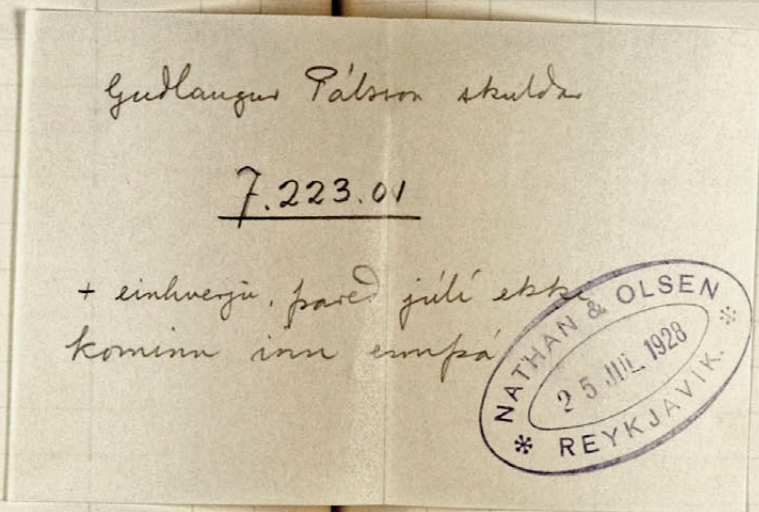 Guðlaugur Pálsson skuldar
7.223.01
+ einhverju, þareð júlí ekki
kominn inn ennþá
NATHAN & OLSEN
25 JÚL 1928
* REYKJAVIK. *